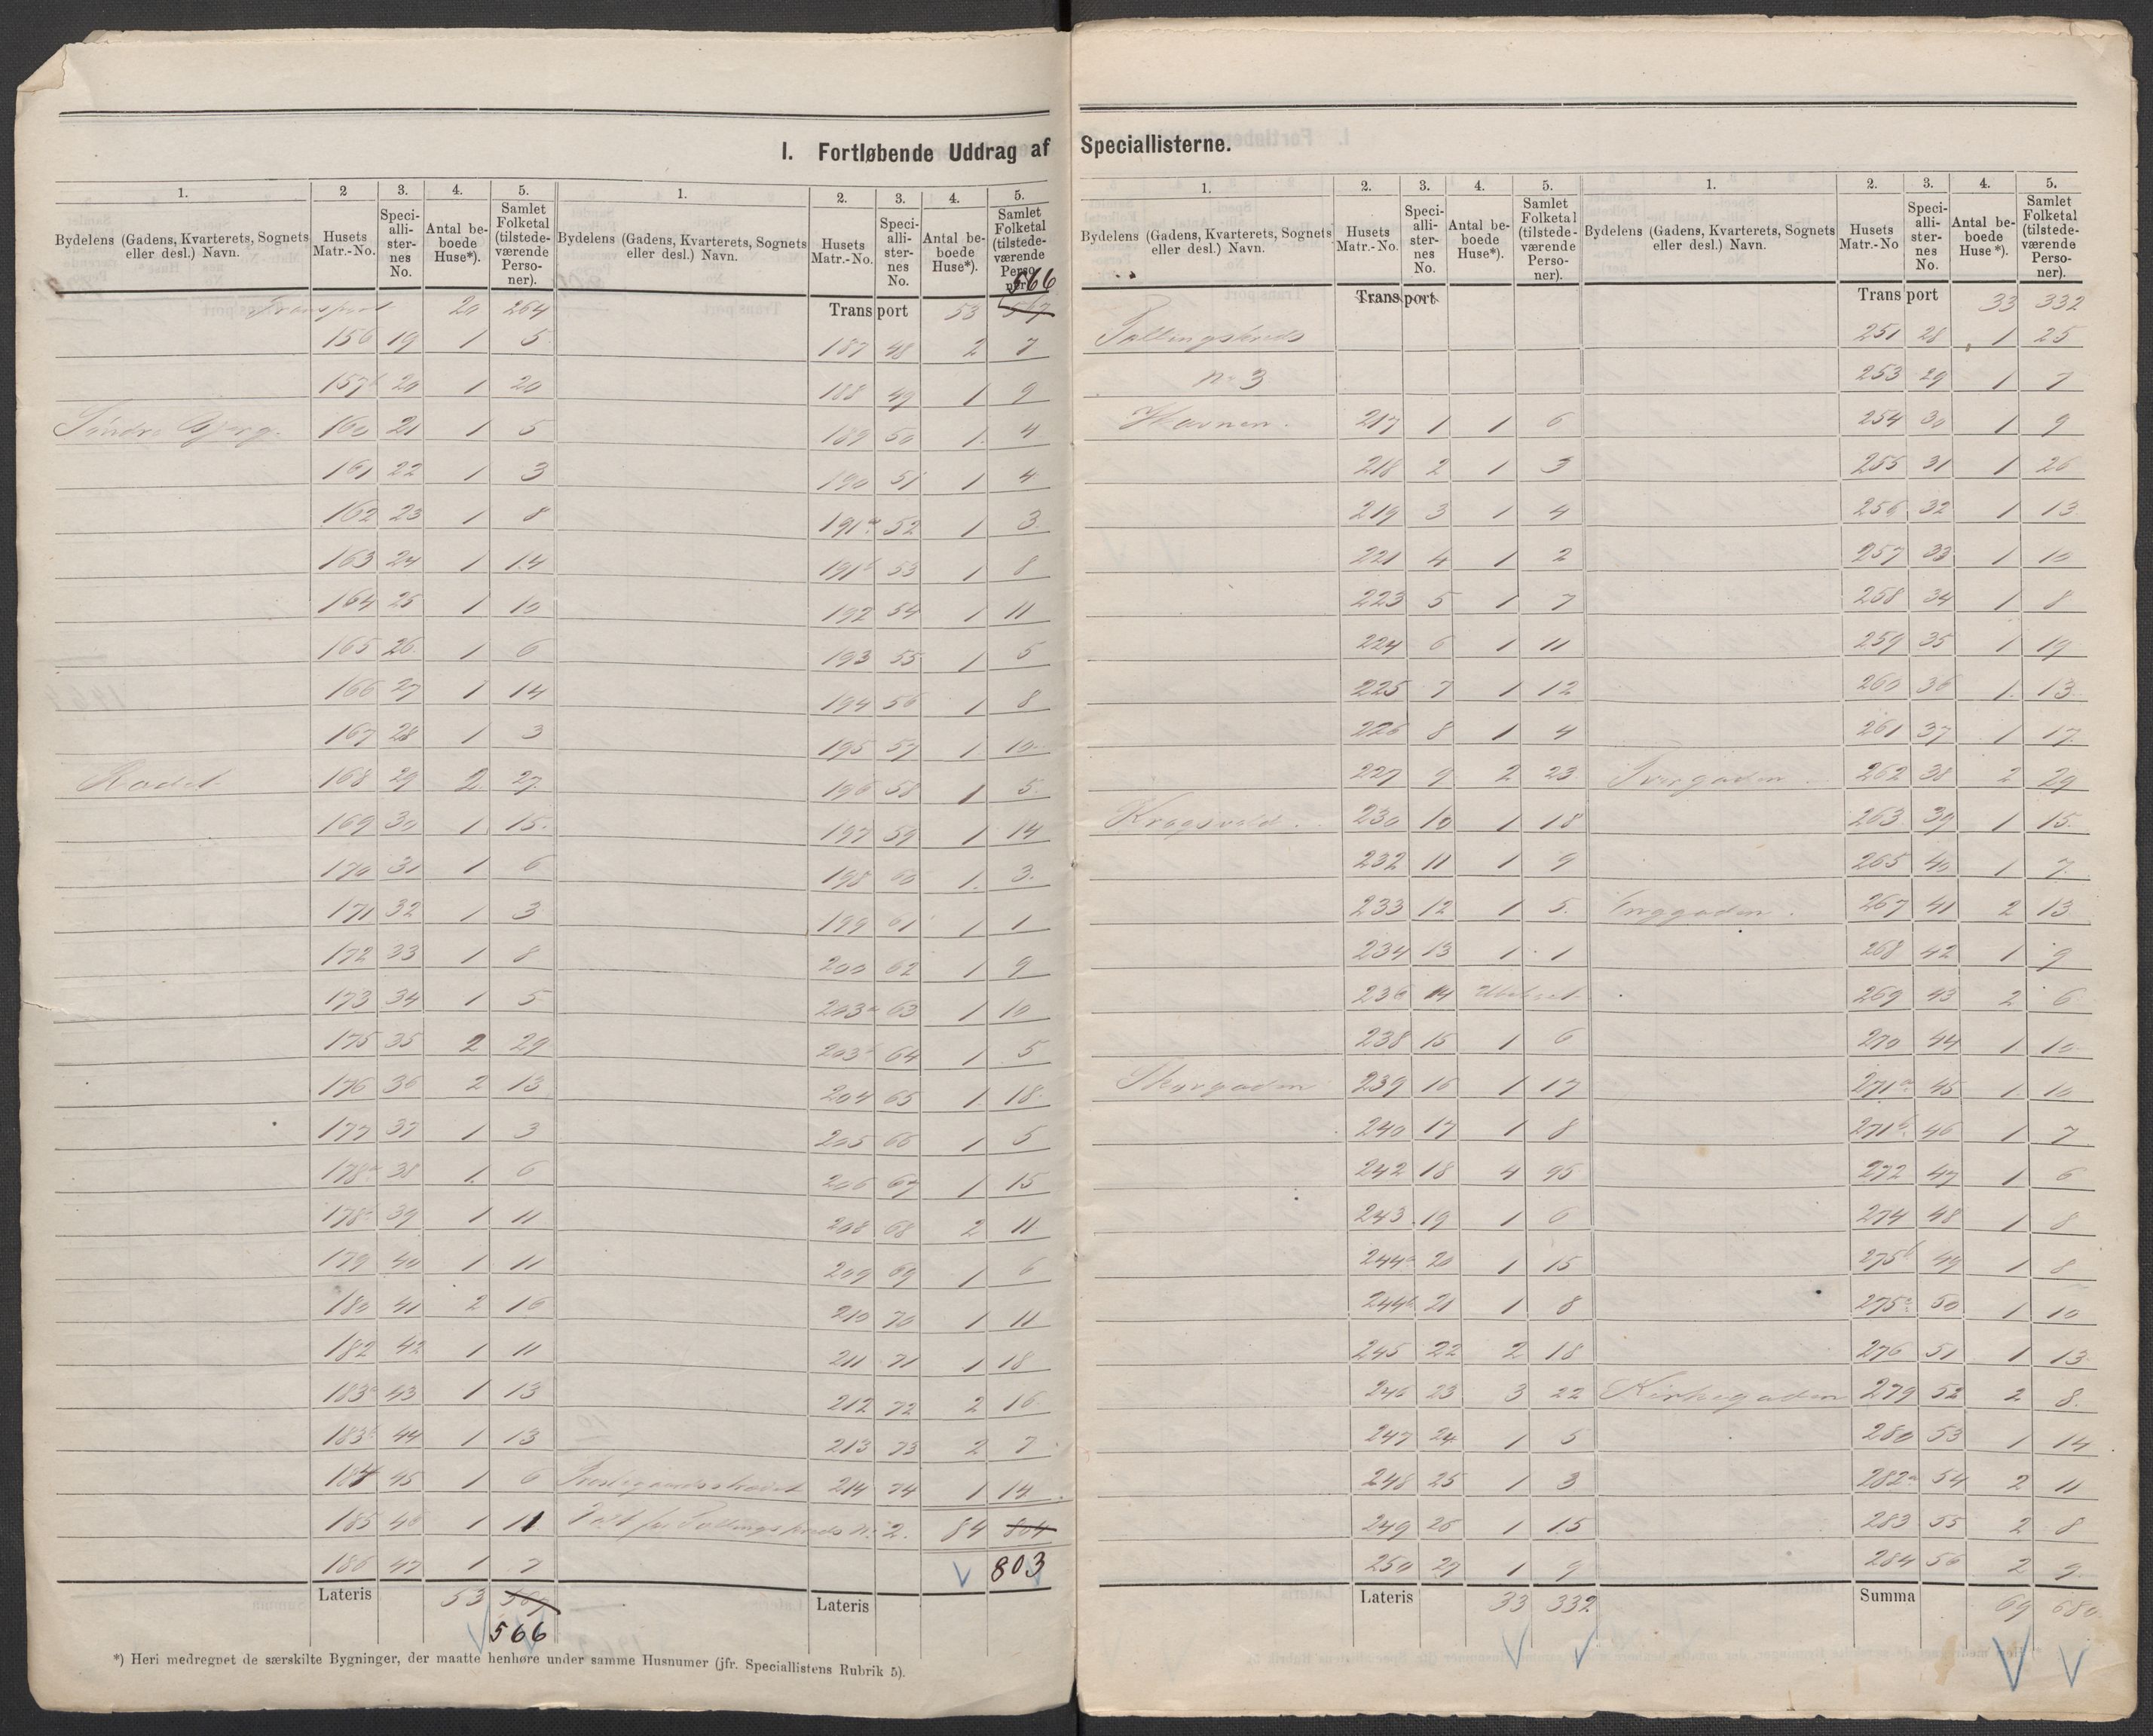 I. Fortløbende Uddrag af Speciallisterne.
1. 2 3. 4. 5.
Bydelens (Gadens, Kvarterets, Sognets eller desl.) Navn. Husets Matr.-No. Speciallisternes No. Antal beboede Huse*). Samlet Folketal (tilstedeværende Personer).
Transport 20 264
156 19 1 5
157b 20 1 20
160 21 1 5
161 22 1 3
162 23 1 8
163 24 1 14
164 25 1 10
165 26 1 6
166 27 1 14
167 28 1 3
168 29 2 27
169 30 1 15
170 31 1 6
171 32 1 3
172 33 1 8
173 34 1 5
175 35 2 29
176 36 2 13
177 37 1 3
178a 38 1 6
178 39 1 11
179 40 1 11
180 41 2 16
182 42 1 11
183a 43 1 13
183b 44 1 13
184 45 1 6
185 46 1 11
186 47 1 7
Lateris 53 567
566
*) Heri medregnet de særskilte Bygninger, der maatte henhøre under samme Husnumer (jfr. Speciallistens Rubrik 5).
1. 2. 3. 4. 5.
Bydelens (Gadens, Kvarterets, Sognets eller desl.) Navn. Husets Matr.-No. Speciallisternes No. Antal beboede Huse*). Samlet Folketal (tilstedeværende Personer).
566
Transport 53 567
187 48 2 7
188 49 1 9
189 50 1 4
190 51 1 4
191a 52 1 3
191b 53 1 8
192 54 1 11
193 55 1 5
194 56 1 8
195 57 1 10
196 58 1 5
197 59 1 14
198 60 1 3
199 61 1 1
200 62 1 9
203a 63 1 10
203b 64 1 5
204 65 1 18
205 66 1 5
206 67 1 15
208 68 2 11
209 69 1 6
210 70 1 11
211 71 1 18
212 72 2 16
213 73 2 7
214 74 1 14
Tællingskreds No. 2. 84 804
803
Lateris
1. 2. 3. 4. 5.
Bydelens (Gadens, Kvarterets, Sognets eller desl.) Navn. Husets Matr.-No. Speciallisternes No. Antal beboede Huse*). Samlet Folketal (tilstedeværende Personer).
Transport
Tællingskreds
No 3
Havnen. 217 1 1 6
218 2 1 3
219 3 1 4
221 4 1 2
223 5 1 7
224 6 1 11
225 7 1 12
226 8 1 4
227 9 2 23
Kragsvold. 230 10 1 18
232 11 1 9
233 12 1 5
234 13 1 1
236 14 Ubeboet
238 15 1 6
239 16 1 17
240 17 1 8
242 18 4 95
243 19 1 6
244a 20 1 15
244b 21 1 8
245 22 2 18
246 23 3 22
247 24 1 5
248 25 1 3
249 26 1 15
250 27 1 9
Lateris 33 332
1. 2. 3. 4. 5.
Bydelens (Gadens, Kvarterets, Sognets eller desl.) Navn. Husets Matr.-No Speciallisternes No. Antal beboede Huse*). Samlet Folketal (tilstedeværende Personer).
Transport 33 332
251 28 1 25
253 29 1 7
254 30 1 9
255 31 1 26
256 32 1 13
257 33 1 10
258 34 1 8
259 35 1 19
260 36 1 13
261 37 1 17
Tvergaden. 262 38 2 29
263 39 1 15
265 40 1 7
Enggaden. 267 41 2 13
268 42 1 9
269 43 2 6
270 44 1 10
271a 45 1 10
271b 46 1 7
272 47 1 6
274 48 1 8
275b 49 1 8
275a 50 1 10
276 51 1 13
Kirkegaden 279 52 2 8
280 53 1 14
282a 54 2 11
283 55 2 8
284 56 2 9
Summa 69 680